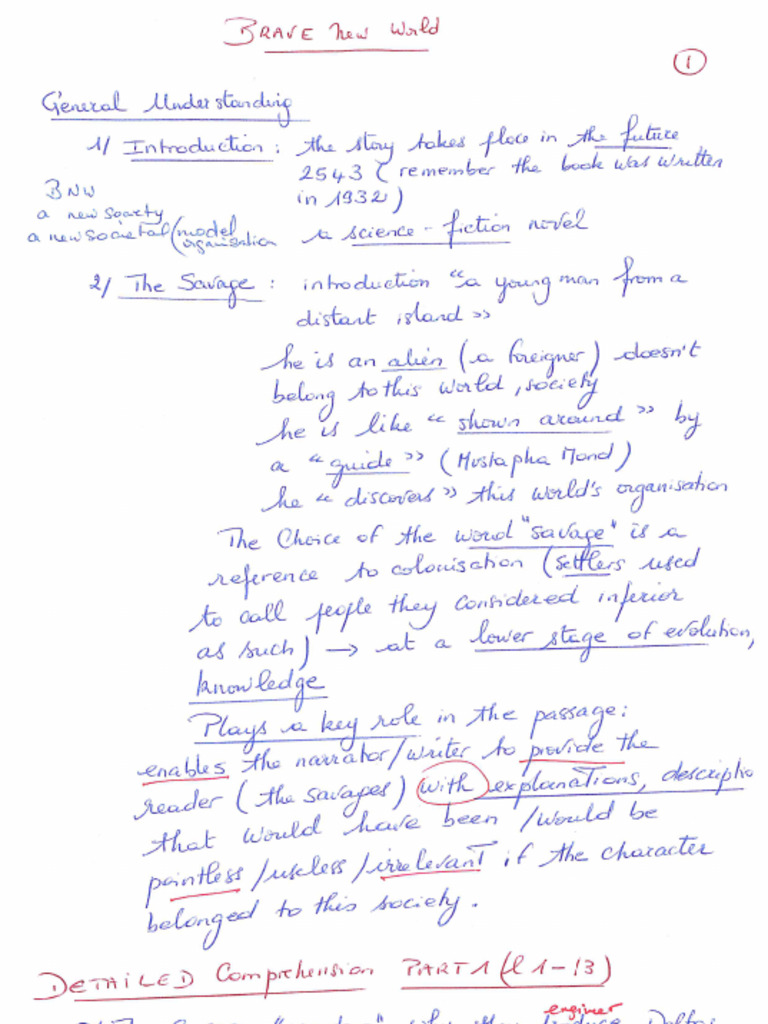 BRAVE New World
1
General Understanding
1/ Introduction : the story takes place in the future
2543 ( remember the book was written
in 1932 )
BNW
a new society
a new societal ( model
organisation
a science-fiction novel
2/ The Savage : introduction "a young man from a
distant island »
he is an alien ( a foreigner ) doesn't
belong to this world, society
he is like " shown around » by
a " guide » ( Mustapha Mond )
he " discovers » this world's organisation
The Choice of the word "savage" is a
reference to colonisation ( settlers used
to call people they considered inferior
as such ) → at a lower stage of evolution,
knowledge
Plays a key role in the passage :
enables the narrator/writer to provide the
reader ( the savages ) with explanations, descriptio
that would have been / would be
pointless / useless / irrelevant if the character
belonged to this society.
DETAILED Comprehension PART 1 ( l 1-13 )
engineer
Deltas